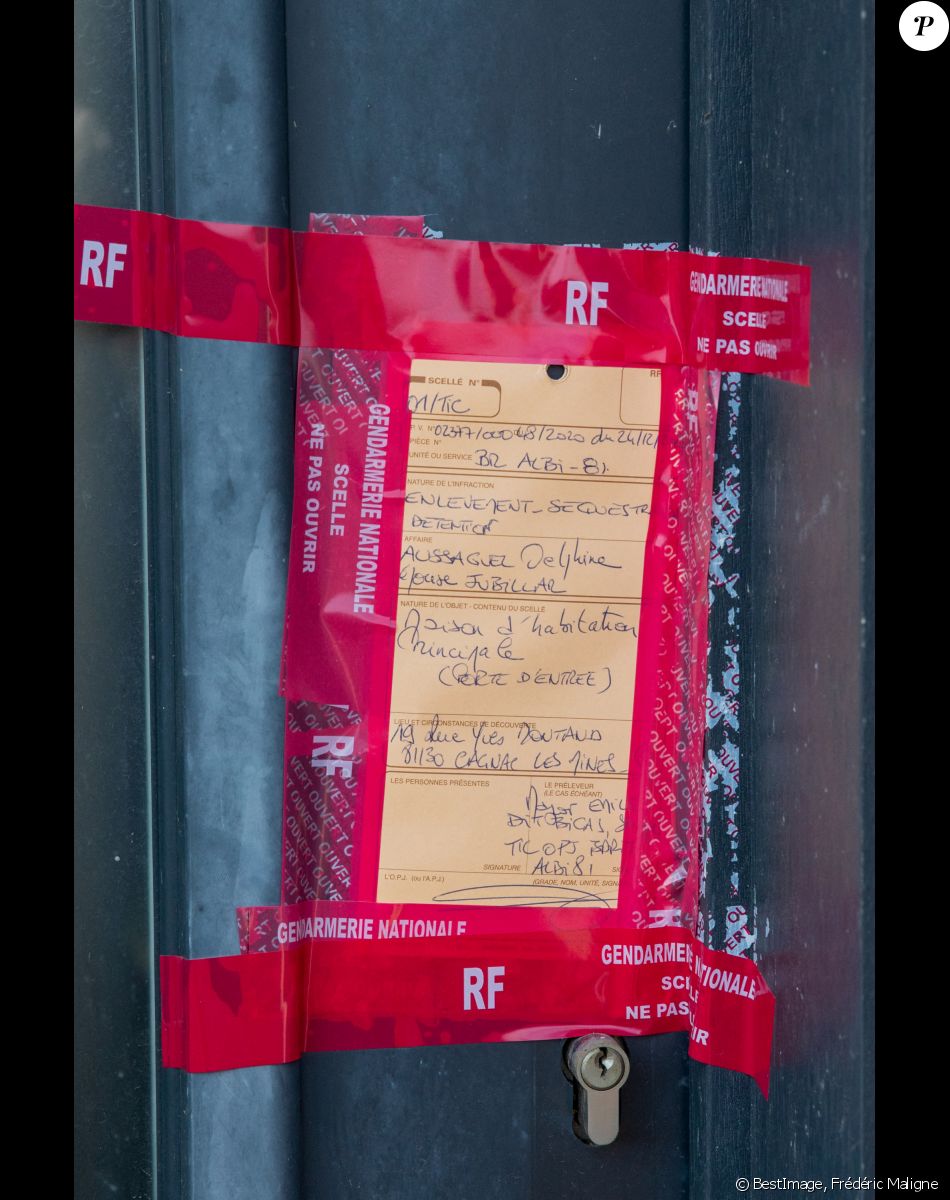 P
RF
RF
GENDARMERIE NATIONALE
SCELLE
NE PAS OUVRIR
SCELLÉ N°
01/TIC
RF
P.V. N° 02377/00048/2020 du 24/12/
PIÈCE N°
UNITÉ OU SERVICE BR ALBI-81
NATURE DE L'INFRACTION
ENLEVEMENT-SEQUESTR
DETENTION
AFFAIRE
AUSSAGUEL Delphine
épouse JUBILLAR
NATURE DE L'OBJET - CONTENU DU SCELLÉ
Maison d'habitation
Principale
(PORTE D'ENTREE)
LIEU ET CIRCONSTANCES DE DÉCOUVERTE
19 Rue Yves MONTAND
81130 CAGNAC LES MINES
LES PERSONNES PRÉSENTES
LE PRÉLEVEUR
(LE CAS ÉCHÉANT)
TIC OPJ
ALBI 81
SIGNATURE
L'O.P.J. (ou l'A.P.J.)
(GRADE, NOM, UNITÉ, SIGN
GENDARMERIE NATIONALE
SCELLE
NE PAS OUVRIR
RF
RF
GENDARMERIE NATIONALE
RF
GENDARMERIE NATIONALE
SCELLE
NE PAS OUVRIR
© BestImage, Frédéric Maligne